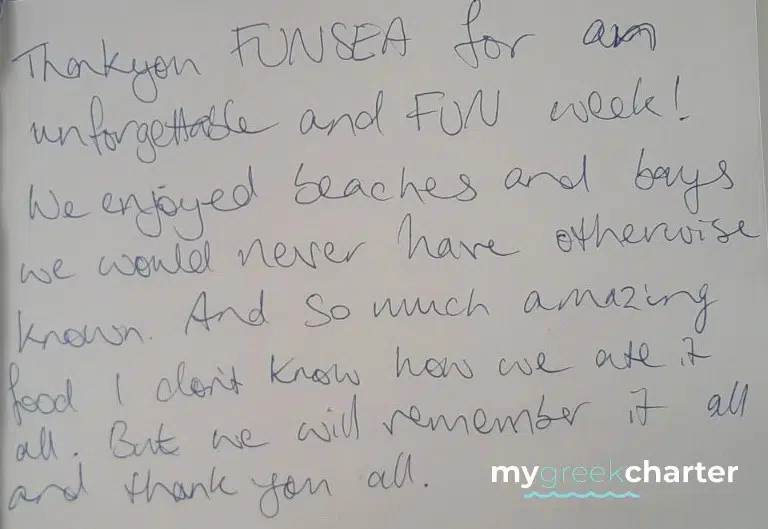 Thankyou FUNSEA for an
unforgettable and FUN week!
We enjoyed beaches and bays
we would never have otherwise
known. And so much amazing
food I don't know how we ate it
all. But we will remember it all
and thank you all.
mygreekcharter